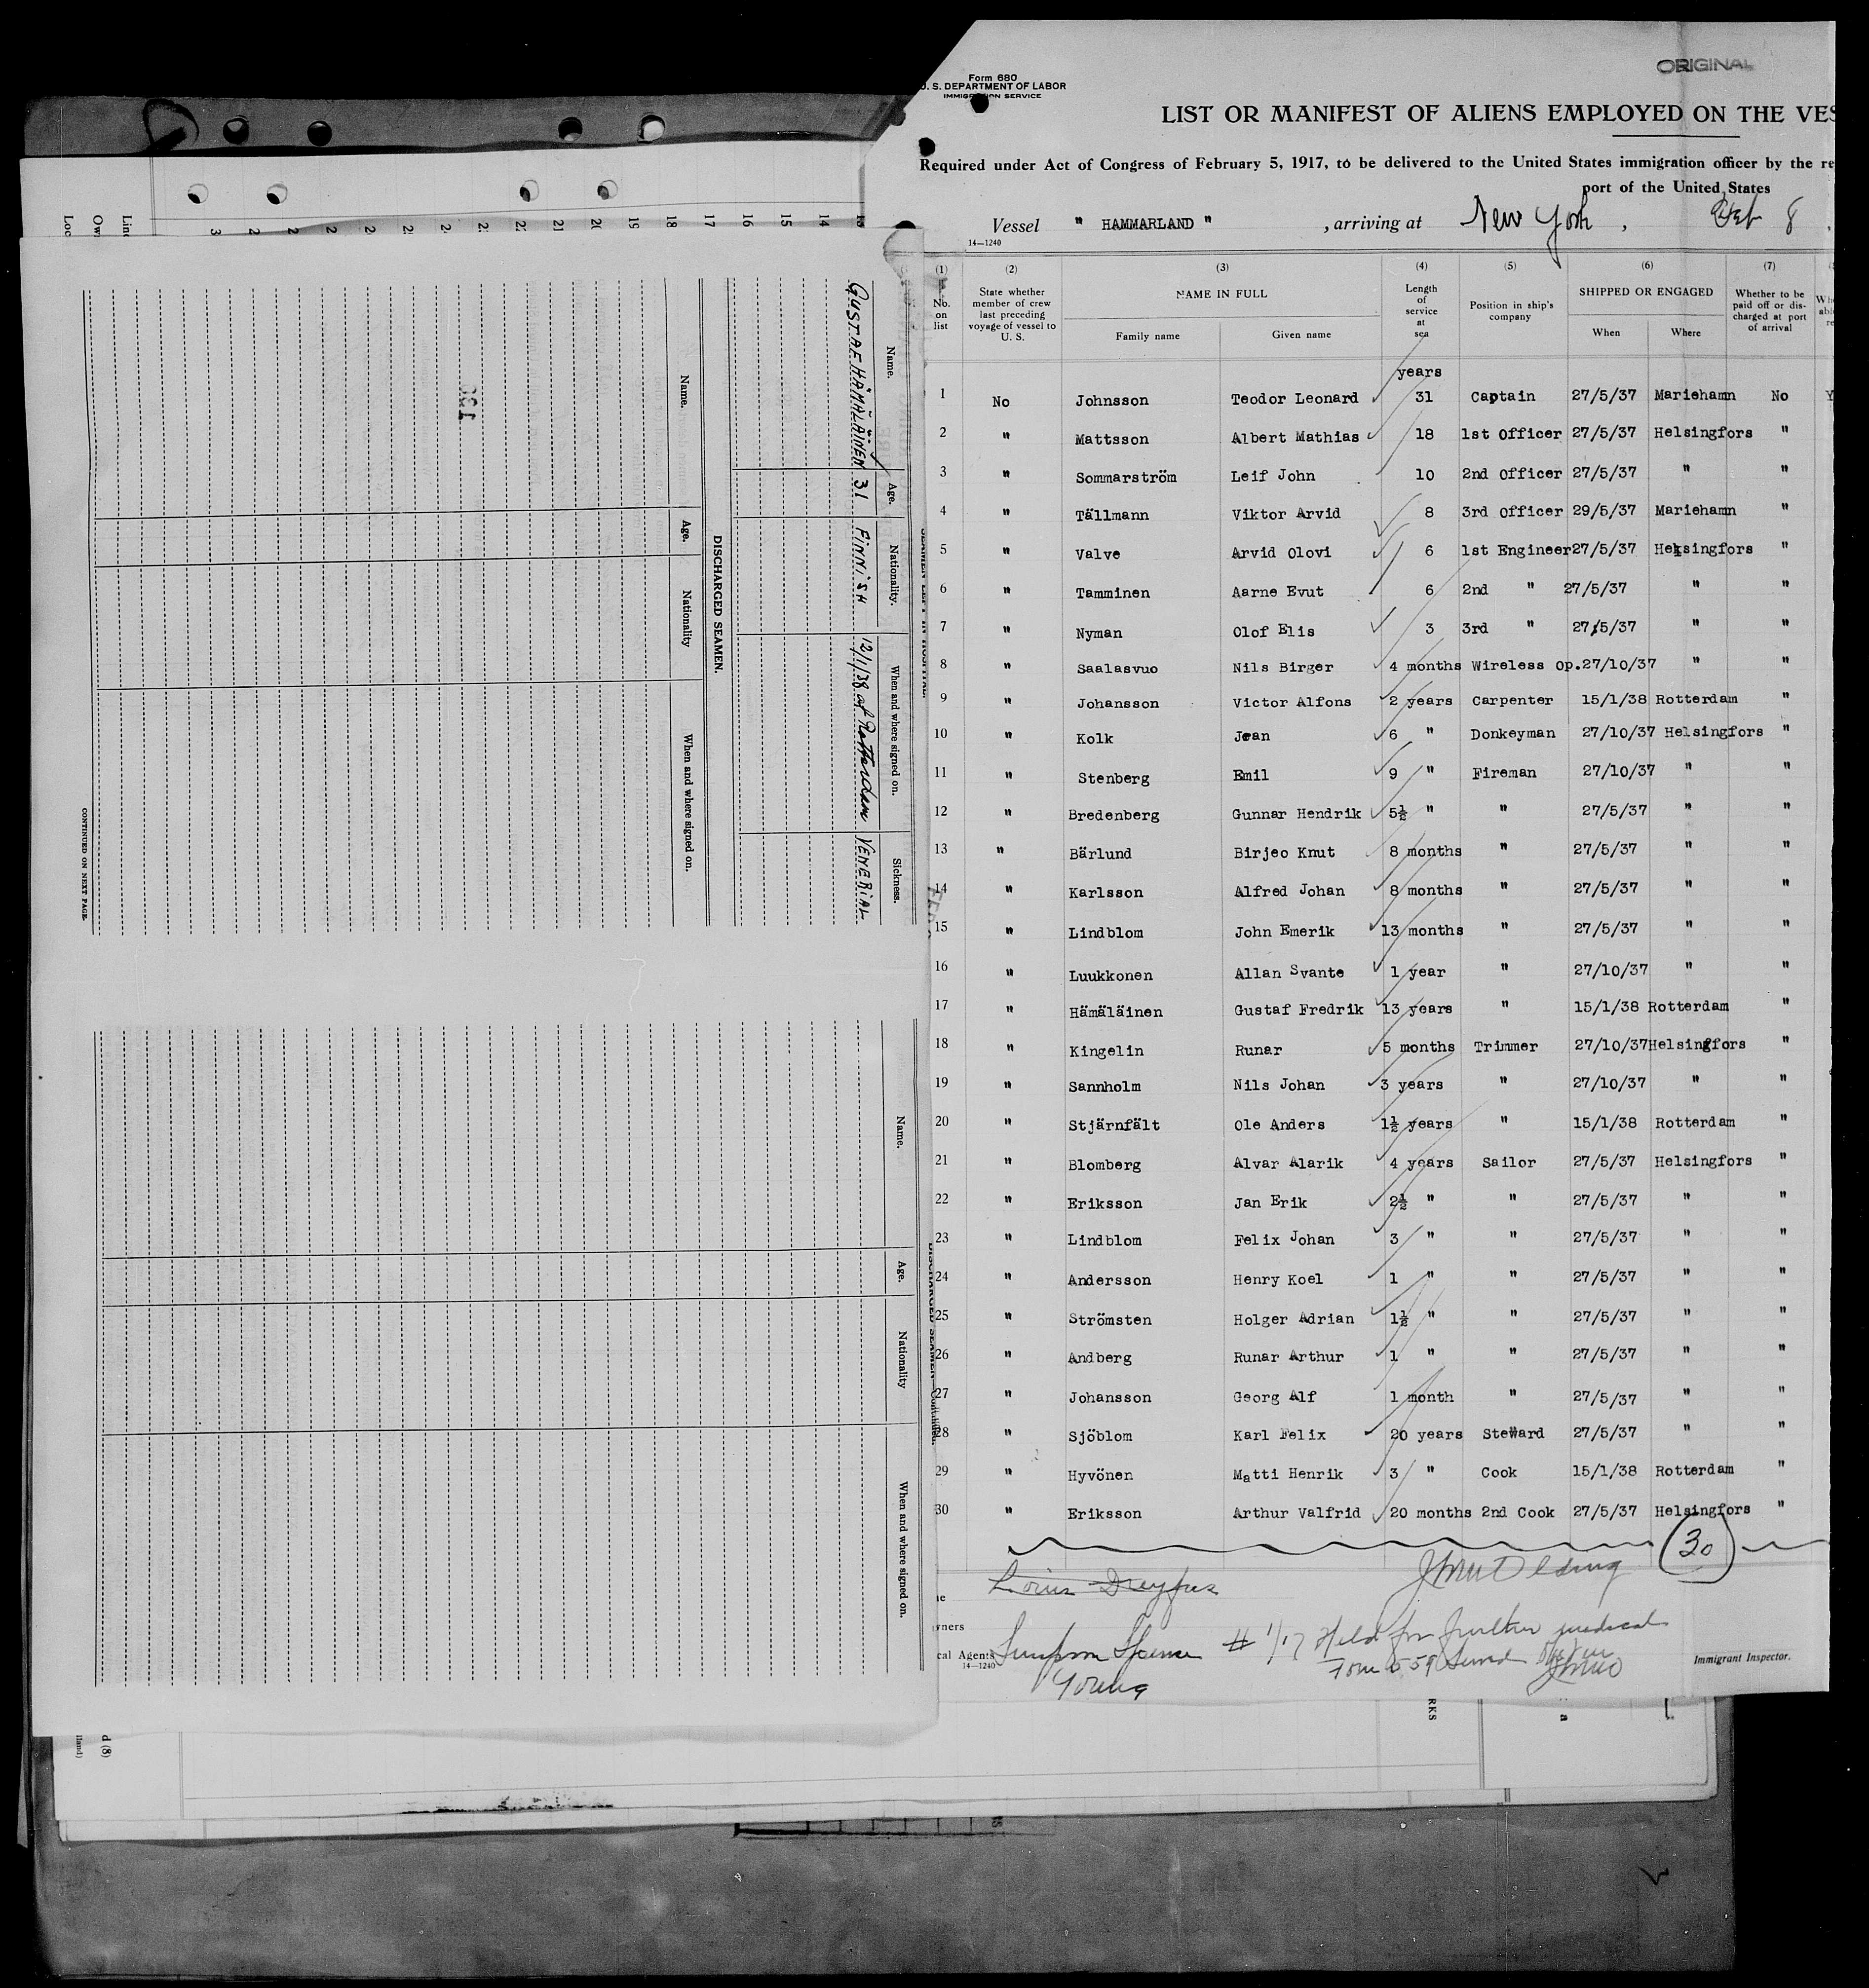 ORIGINAL
Form 680
U. S. DEPARTMENT OF LABOR
IMMIGRATION SERVICE
LIST OR MANIFEST OF ALIENS EMPLOYED ON THE VES
Required under Act of Congress of February 5, 1917, to be delivered to the United States immigration officer by the re
port of the United States
Vessel " HAMMARLAND " , arriving at New York , Feb 8 ,
14—1240
(1) (2) (3) (4) (5) (6) (7)
No. on list State whether member of crew last preceding voyage of vessel to U. S. NAME IN FULL Length of service at sea Position in ship's company SHIPPED OR ENGAGED Whether to be paid off or discharged at port of arrival
Family name Given name When Where
years
1 No Johnsson Teodor Leonard 31 Captain 27/5/37 Mariehamn No Y
2 " Mattsson Albert Mathias 18 1st Officer 27/5/37 Helsingfors "
3 " Sommarström Leif John 10 2nd Officer 27/5/37 " "
4 " Tällmann Viktor Arvid 8 3rd Officer 29/5/37 Mariehamn "
5 " Valve Arvid Olovi 6 1st Engineer 27/5/37 Helsingfors "
6 " Tamminen Aarne Evut 6 2nd " 27/5/37 " "
7 " Nyman Olof Elis 3 3rd " 27/5/37 " "
8 " Saalasvuo Nils Birger 4 months Wireless op. 27/10/37 " "
9 " Johansson Victor Alfons 2 years Carpenter 15/1/38 Rotterdam "
10 " Kolk Jean 6 " Donkeyman 27/10/37 Helsingfors "
11 " Stenberg Emil 9 " Fireman 27/10/37 " "
12 " Bredenberg Gunnar Hendrik 5½ " " 27/5/37 " "
13 " Bärlund Birjeo Knut 8 months " 27/5/37 " "
14 " Karlsson Alfred Johan 8 months " 27/5/37 " "
15 " Lindblom John Emerik 13 months " 27/5/37 " "
16 " Luukkonen Allan Svante 1 year " 27/10/37 " "
17 " Hämäläinen Gustaf Fredrik 13 years " 15/1/38 Rotterdam "
18 " Kingelin Runar 5 months Trimmer 27/10/37 Helsingfors "
19 " Sannholm Nils Johan 3 years " 27/10/37 " "
20 " Stjärnfält Ole Anders 1½ years " 15/1/38 Rotterdam "
21 " Blomberg Alvar Alarik 4 years Sailor 27/5/37 Helsingfors "
22 " Eriksson Jan Erik 2½ " " 27/5/37 " "
23 " Lindblom Felix Johan 3 " " 27/5/37 " "
24 " Andersson Henry Koel 1 " " 27/5/37 " "
25 " Strömsten Holger Adrian 1½ " " 27/5/37 " "
26 " Andberg Runar Arthur 1 " " 27/5/37 " "
27 " Johansson Georg Alf 1 month " 27/5/37 " "
28 " Sjöblom Karl Felix 20 years Steward 27/5/37 " "
29 " Hyvönen Matti Henrik 3 " Cook 15/1/38 Rotterdam "
30 " Eriksson Arthur Valfrid 20 months 2nd Cook 27/5/37 Helsingfors "
30
Louis Dreyfus
wners
cal Agents Simpson Spence
Young
14—1240
# 1/17 Held for further medical
Form 559 Served
Immigrant Inspector.
Name. Age. Nationality. When and where signed on. Sickness.
GUSTAF HÄMÄLÄINEN 31 FINNISH 12/1/38 at Rotterdam VENERIAL
DISCHARGED SEAMEN.
Name. Age. Nationality When and where signed on.
CONTINUED ON NEXT PAGE.
Name. Age. Nationality When and where signed on.
Loc
Ow
Line
20
19
18
17
16
15
14
d (8)
RKS